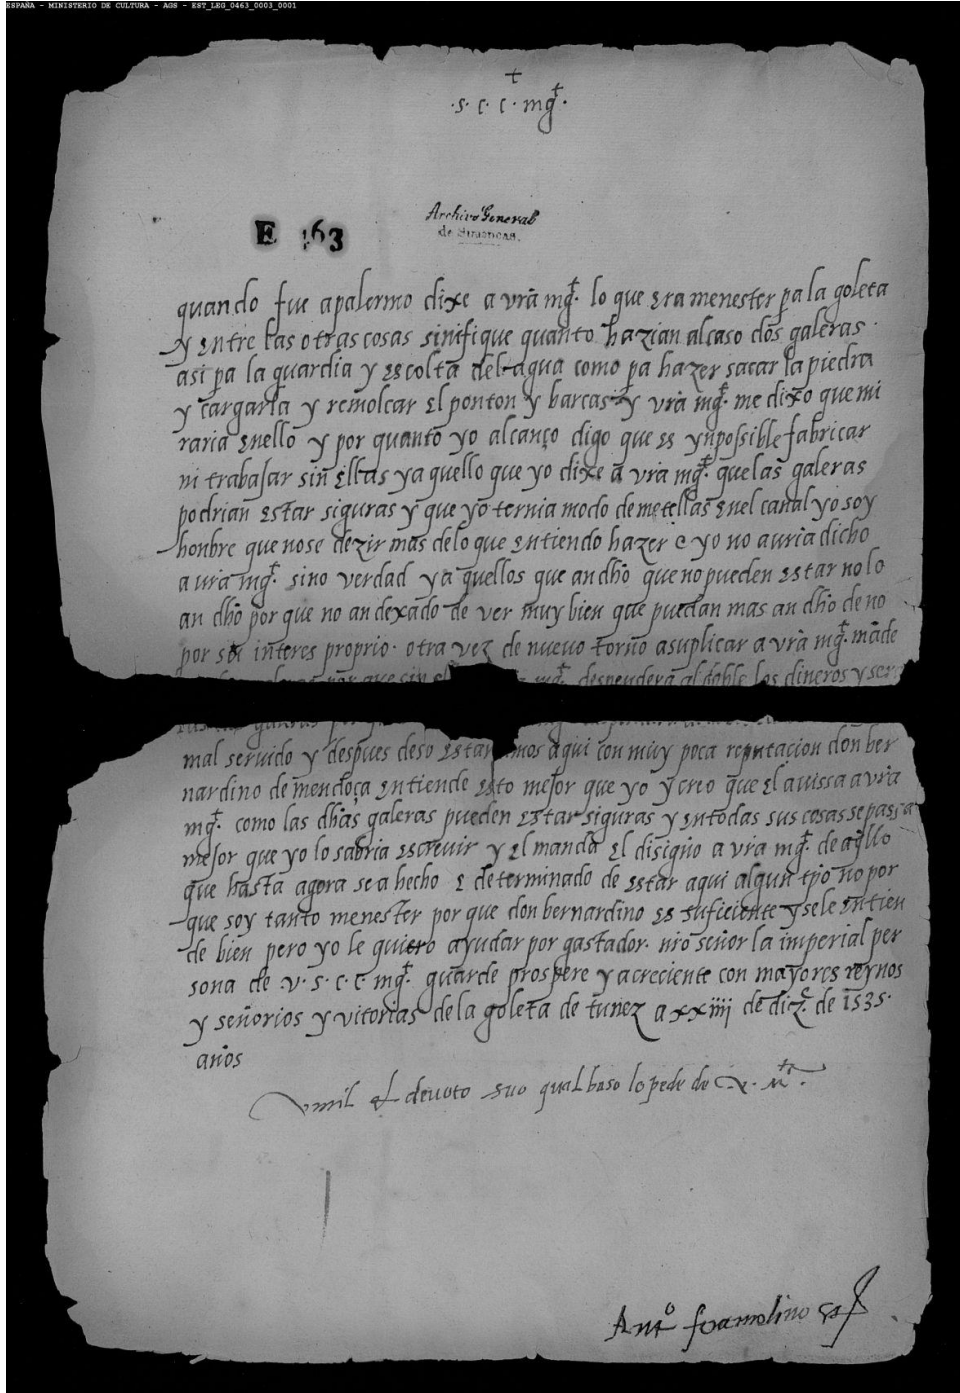 ESPAÑA - MINISTERIO DE CULTURA - AGS - EST_LEG_0463_0003_0001
+
·s· c· c· mgᵗ·
Archivo General
de Simancas.
E 463
quando fue apalermo dixe a vrã mgᵗ. lo que era menester pa la goleta
y entre las otras cosas sinifique quanto hazian alcaso dos galeras
asi pa la guardia y escolta del agua como pa hazer sacar la piedra
y cargarla y remolcar el ponton y barcas y vrã mgᵗ. me dixo que mi
raria enello y por quanto yo alcanço digo que es ynpossible fabricar
ni trabajar sin ellas y aquello que yo dixe a vrã mgᵗ. que las galeras
podrian estar siguras y que yo ternia modo de metellas enel canal yo soy
honbre que nose dezir mas delo que entiendo hazer e yo no auria dicho
a vrã mgᵗ. sino verdad y aquellos que an dho que no pueden estar no lo
an dho por que no an dexado de ver muy bien que puedan mas an dho de no
por su interes proprio· otra vez de nueuo torno asuplicar a vrã mgᵗ. mãde
por que sin mgᵗ. despendera al doble los dineros y sera
mal seruido y despues deso estaramos aqui con muy poca reputacion don ber
nardino de mendoça entiende esto mejor que yo y creo que el auissa a vrã
mgᵗ. como las dhas galeras pueden estar siguras y entodas sus cosas se passa
mejor que yo lo sabria escreuir y el manda el disigno a vrã mgᵗ. de aqllo
que hasta agora se a hecho e determinado de estar aqui algun tpo no por
que soy tanto menester por que don bernardino es suficiente y sele entien
de bien pero yo le quiero ayudar por gastador· nro señor la imperial per
sona de ·v· s· c· c· mgᵗ. guarde prospere y acreciente con mayores reynos
y señorios y vitorias de la goleta de tunez a xxiiii de dizᵉ. de 1535·
años
vmil et deuoto suo qual baso lo pede de V. Mᵗᵃ.
Antº feramolino